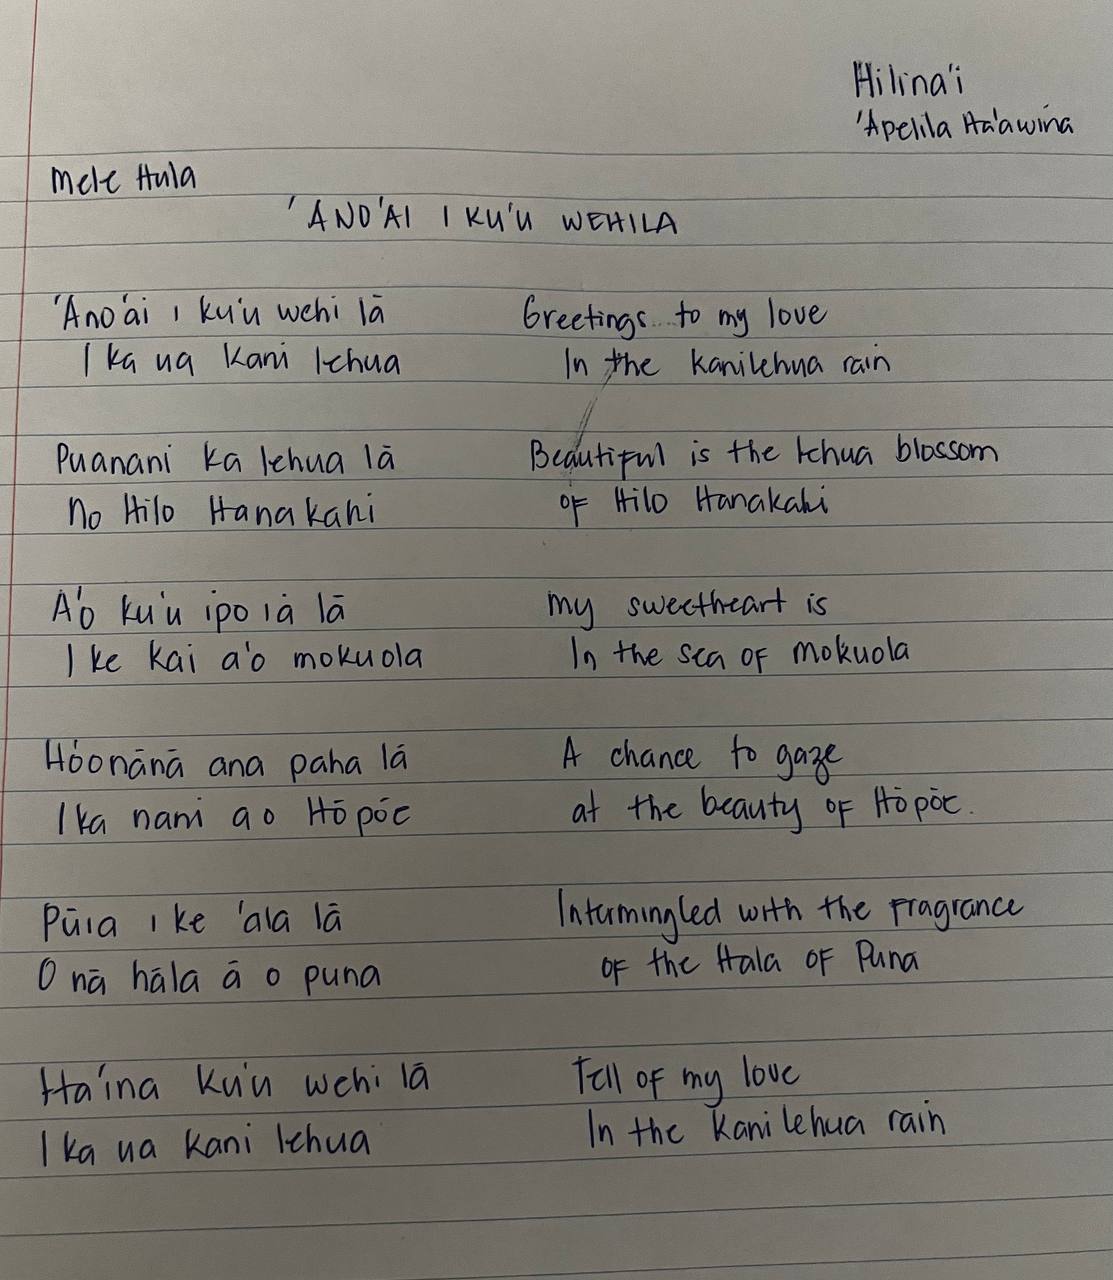 Hilina'i
'Apelila Ha'awina
Mele Hula
'ANO'AI I KU'U WEHILA
'Ano'ai i ku'u wehi lā
I ka ua Kani lehua
Greetings to my love
In the Kanilehua rain
Puanani ka lehua lā
No Hilo Hanakahi
Beautiful is the lehua blossom
of Hilo Hanakahi
A'o ku'u ipo iā lā
I ke kai a'o mokuola
My sweetheart is
In the sea of Mokuola
Hó'onānā ana paha lā
I ka nani a o Hōpóe
A chance to gaze
at the beauty of Hōpōe.
Pūia i ke 'ala lā
O nā hāla ā o puna
Intermingled with the fragrance
of the Hala of Puna
Ha'ina Ku'u wehi lā
I ka ua Kani lehua
Tell of my love
In the Kanilehua rain